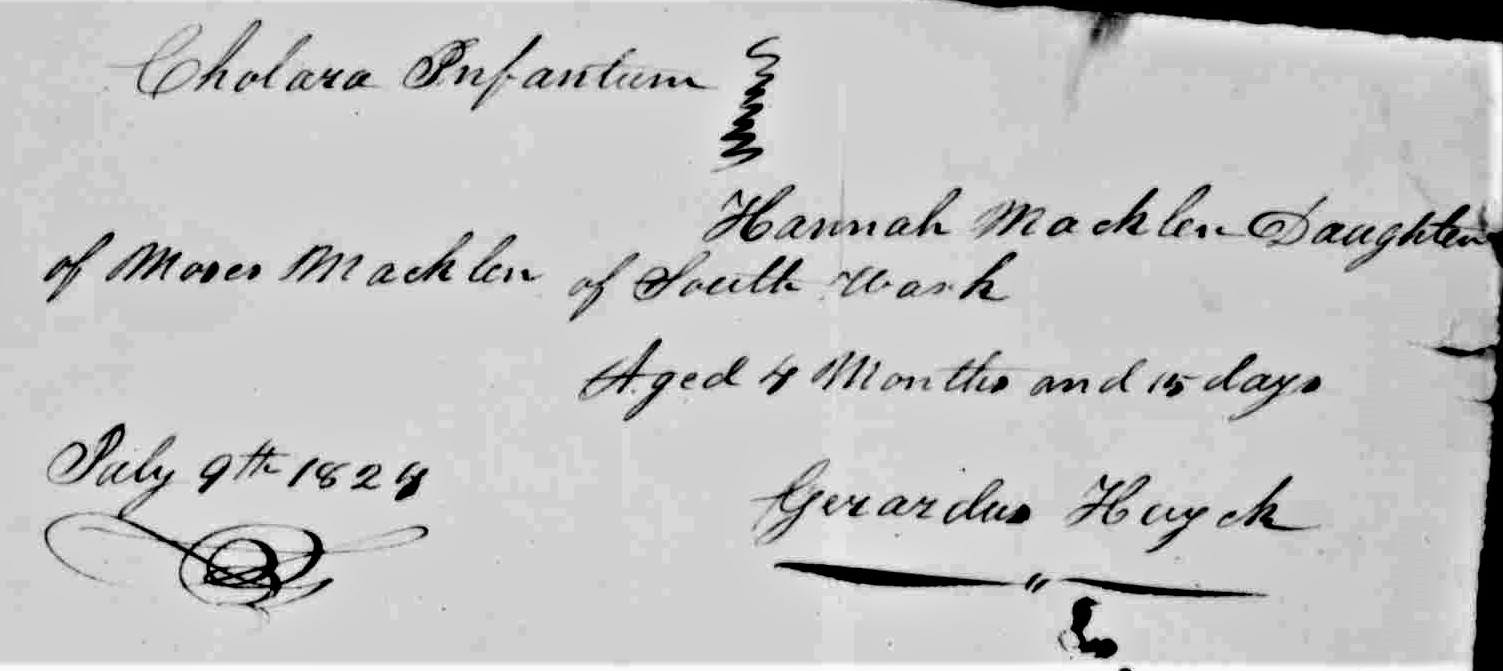 Cholara Infantum
Hannah Macklen Daughter
of Moses Macklen of South Wark
Aged 4 Months and 15 days
July 9th 1824
Gerardus Huyck